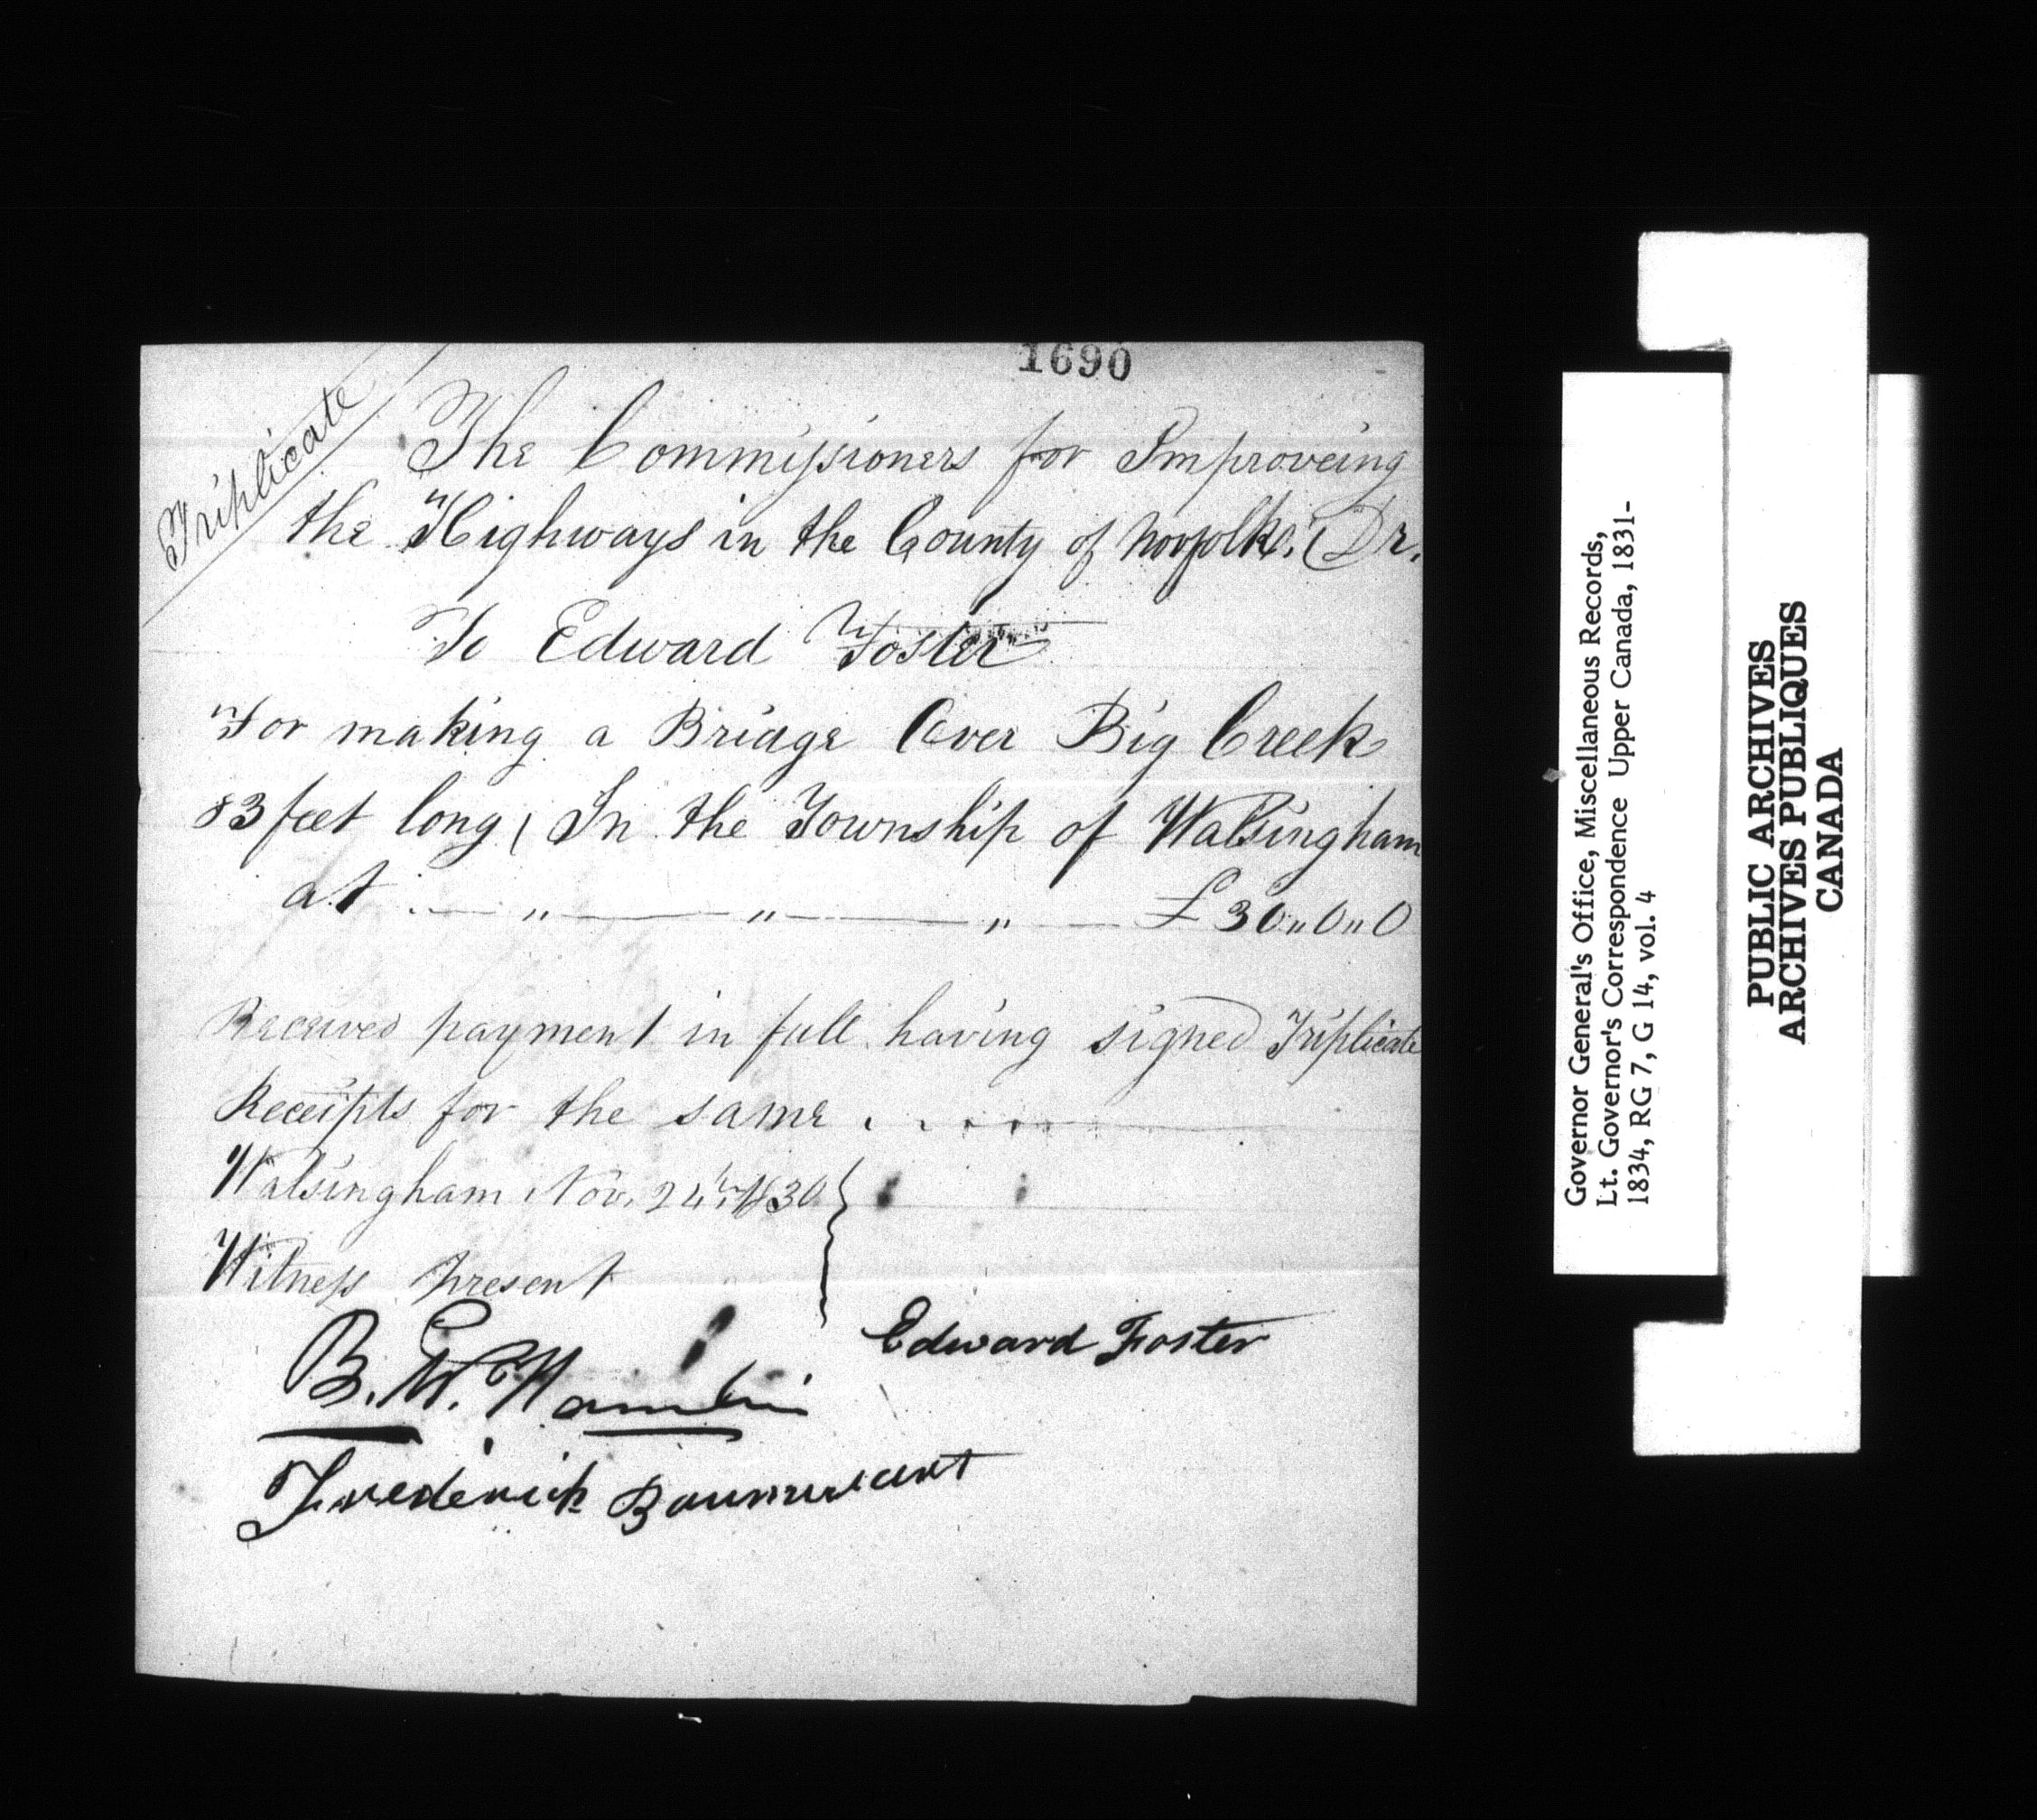 1690
Triplicate
The Commissioners for Improveing
the Highways in the County of Norfolk. Dr.
To Edward Foster
For making a Bridge Over Big Creek
83 feet long, In the Township of Walsingham
at — „ — „ — „ — £30„0„0
Received payment in full having signed Triplicate
Receipts for the same . . . . . .
Walsingham Nov. 24th 1830
Witness present
Edward Foster
B. W. Hamlin
Frederick
Governor General's Office, Miscellaneous Records,
Lt. Governor's Correspondence Upper Canada, 1831-
1834, RG 7, G 14, vol. 4
PUBLIC ARCHIVES
ARCHIVES PUBLIQUES
CANADA